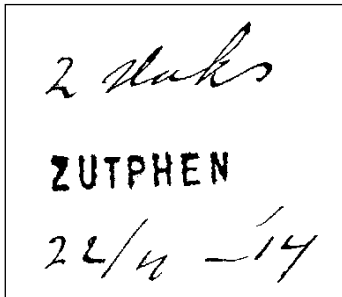 2 stuks
ZUTPHEN
22/4 -'14